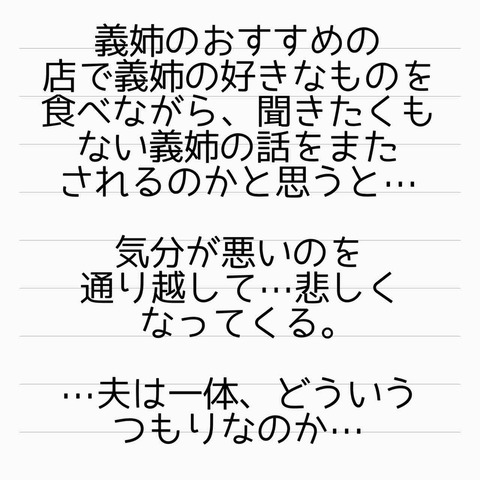 義姉のおすすめの
店で義姉の好きなものを
食べながら、聞きたくも
ない義姉の話をまた
されるのかと思うと…
気分が悪いのを
通り越して…悲しく
なってくる。
…夫は一体、どういう
つもりなのか…